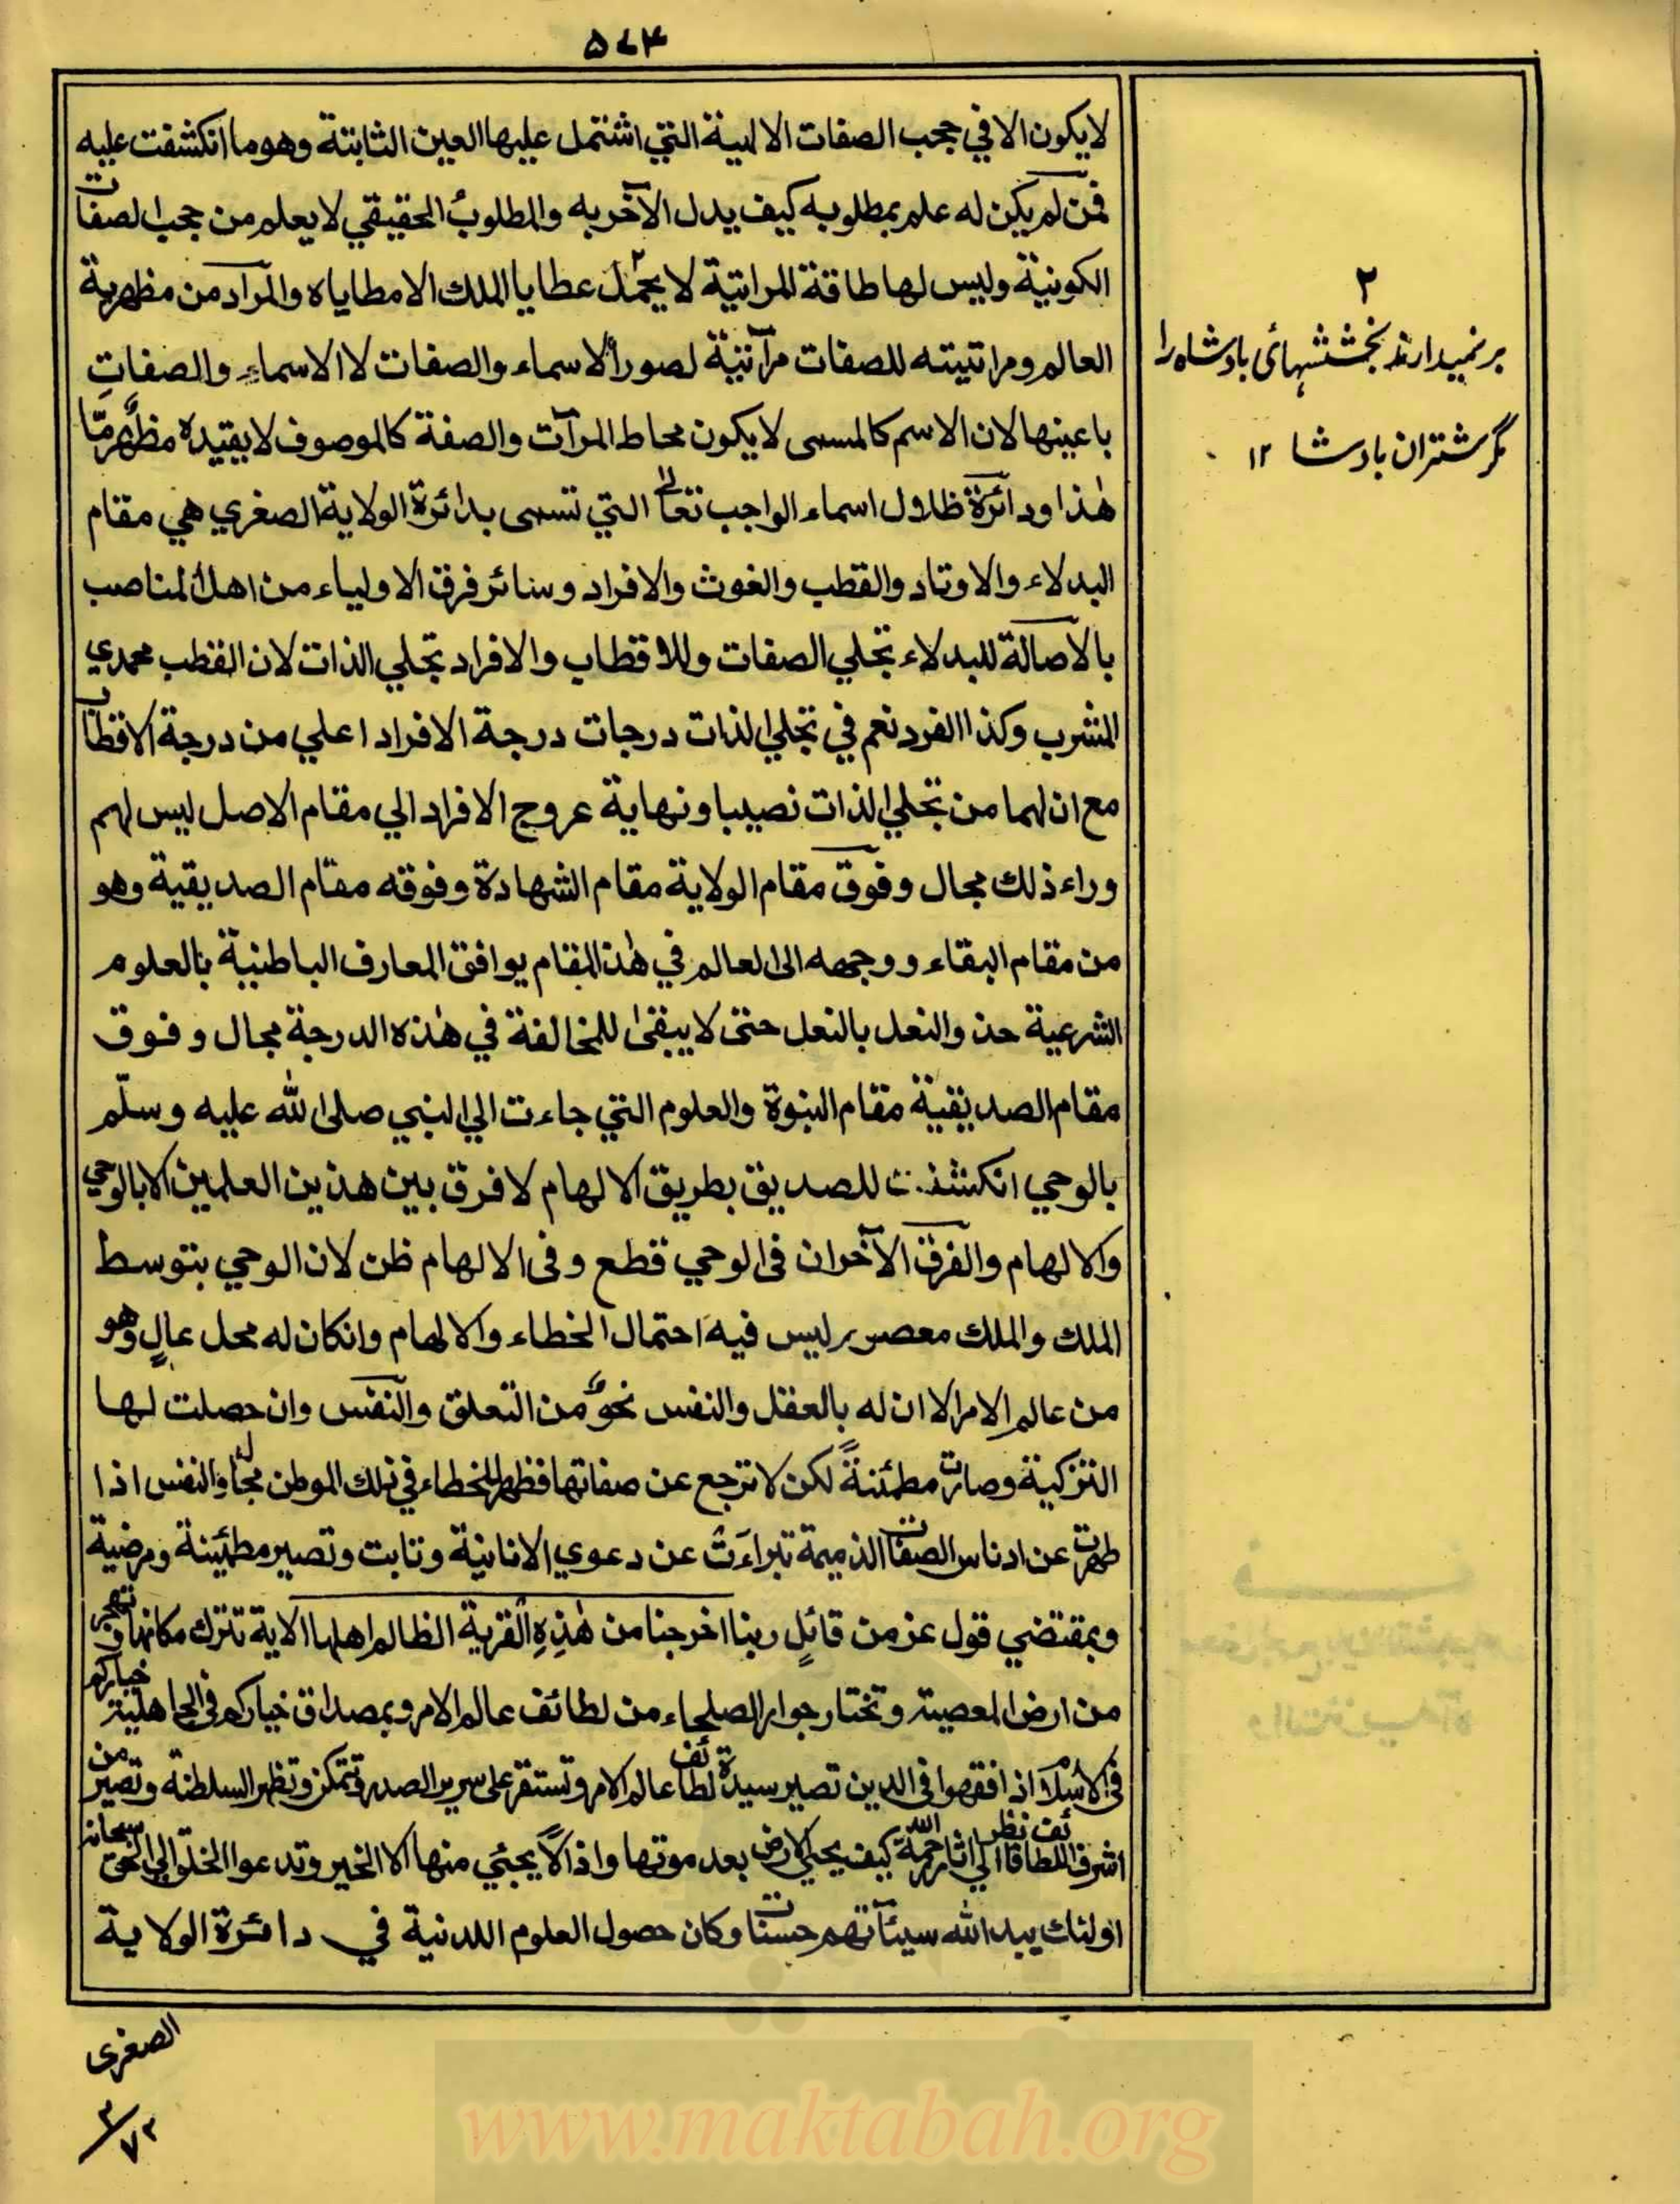 ٥٧٤
لايكون الا في حجب الصفات الالهية التي اشتمل عليها العين الثابتة وهو ما انكشفت عليه
فمن لم يكن له علم بمطلوبه كيف يدل الآخر به والمطلوبُ الحقيقي لا يعلم من حجب الصفات
الكونية وليس لها طاقة المراتية لا يحمل عطايا الملك الا مطاياه والمراد من مظهرية
العالم ومراتيته للصفات مرآتية لصور الاسماء والصفات لا الاسماءِ والصفاتِ
باعينها لان الاسم كالمسمى لا يكون محاط المرآت والصفة كالموصوف لا يقيده مظهرٌ مّا
هٰذا ودائرة ظلال اسماء الواجب تعالى التي تسمى بدائرة الولاية الصغري هي مقام
البدلاء والاوتاد والقطب والغوث والافراد وسائر فرق الاولياء من اهل المناصب
بالاصالة للبدلاء تجلي الصفات وللاقطاب والافراد تجلي الذات لان القطب محمدي
المشرب وكذا الفرد نعم في تجلي الذات درجات درجة الافراد اعلي من درجة الاقطاب
مع ان لهما من تجلي الذات نصيبا ونهاية عروج الافراد الي مقام الاصل ليس لهم
وراء ذلك مجال وفوق مقام الولاية مقام الشهادة وفوقه مقام الصديقية وهو
من مقام البقاء ووجهه الى العالم في هٰذا المقام يوافق المعارف الباطنية بالعلوم
الشرعية حذو النعل بالنعل حتى لا يبقىٰ للمخالفة في هٰذه الدرجة مجال وفوق
مقام الصديقية مقام النبوة والعلوم التي جاءت الي النبي صلى الله عليه وسلّم
بالوحي انكشفت للصديق بطريق الالهام لا فرق بين هذين العلمين الا بالوحي
والالهام والفرق الآخر ان فى الوحي قطع وفى الالهام ظن لان الوحي بتوسط
الملك والملك معصوم ليس فيه احتمال الخطاء والالهام وانكان له محل عالٍ وهو
من عالم الامر الا ان له بالعقل والنفس نحوٌ من التعلق والنفس وان حصلت لها
التزكية وصارت مطمئنةً لكن لا ترجع عن صفاتها فظهر للخطاء في تلك الموطن مجال والنفس اذا
طهرت عن ادناس الصفات الذميمة تبراءت عن دعوي الانانية وتابت وتصير مطمئنة ومرضية
وبمقتضي قول عز من قائلٍ ربنا اخرجنا من هٰذِهِ القرية الظالم اهلها الاية تترك مكانها وتهجر
من ارض المعصية وتختار جوار الصلحاء من لطائف عالم الامر وبمصداق خياركم فى الجاهلية خياركم
فى الاسلام اذا فقهوا فى الدين تصير سيدة لطائف عالم الامر وتستقر على سرير الصدر وتتمكن وتظهر السلطنة وتصير من
اشرف اللطائف فانظر الي اثار رحمة الله كيف يحيي الارض بعد موتها واذاً لا يجئي منها الا الخير وتدعوا الخلق الي الحق سبحانه
اولئك يبدل الله سيئاتهم حسنات وكان حصول العلوم اللدنية في دائرة الولاية
٢
برنمیدارند بخششهائ بادشاه را
مگر شتران بادشا ١٢
الصغری
٢/٧٢
www.maktabah.org